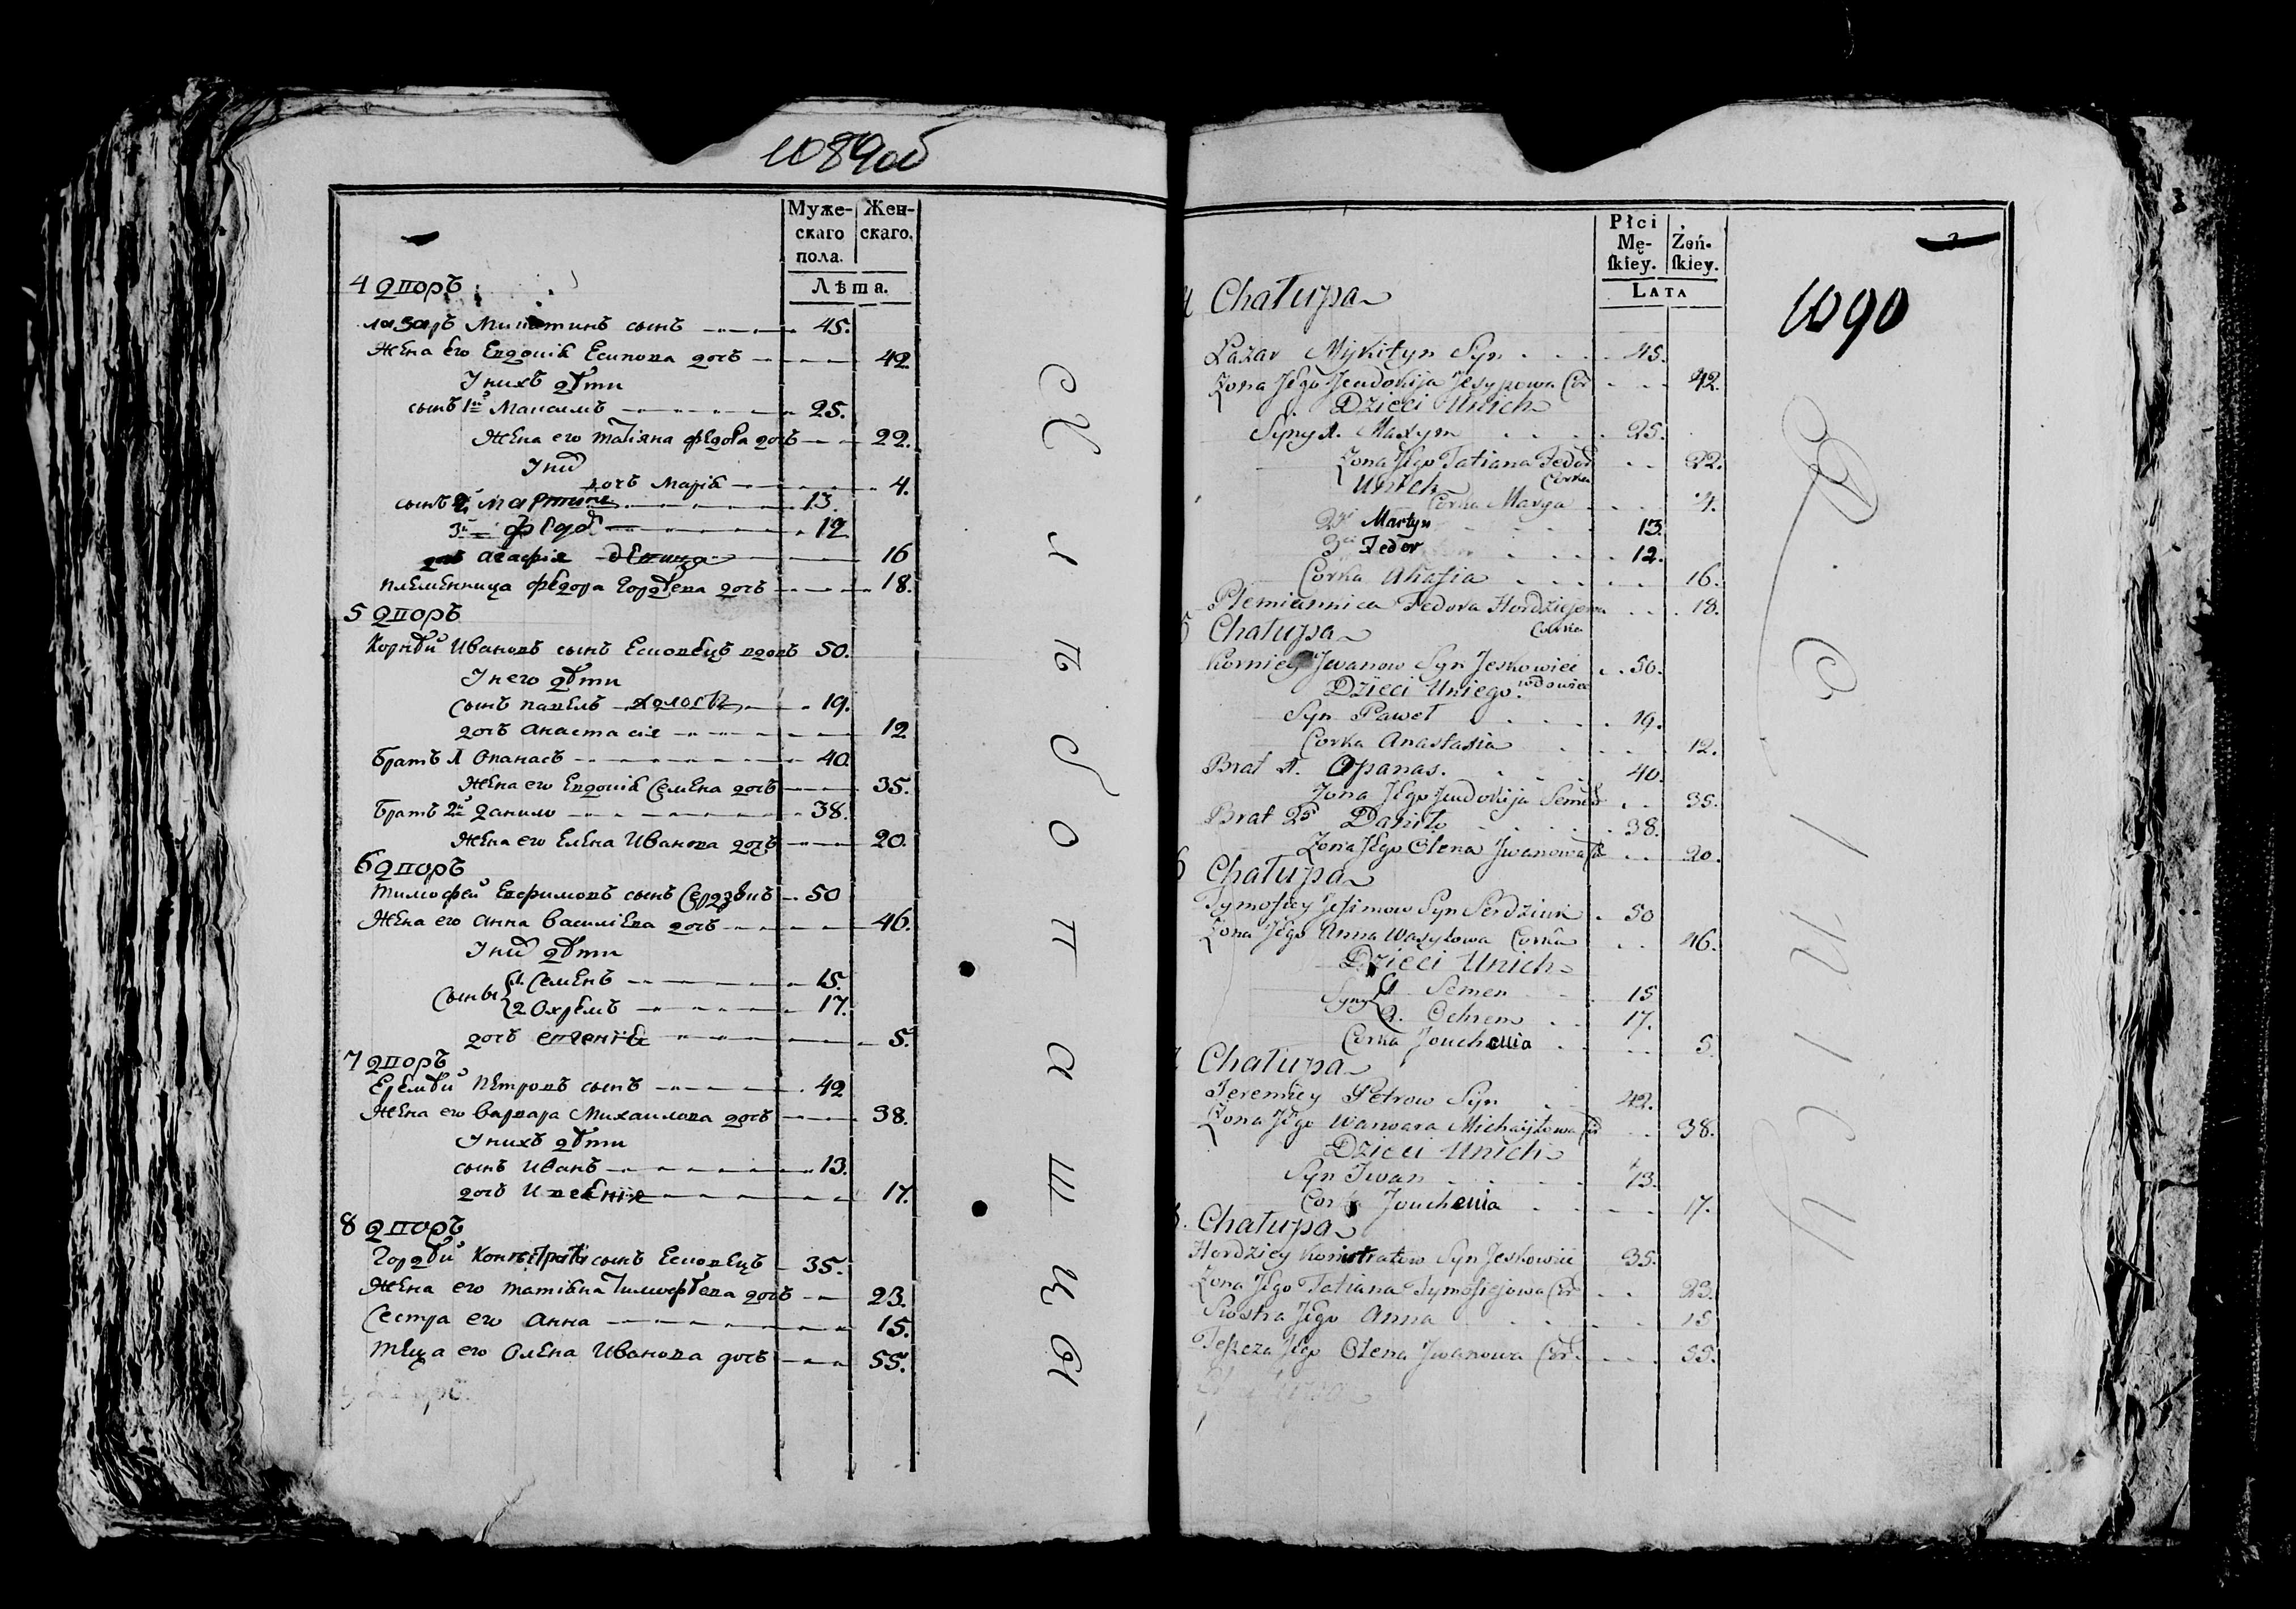 1089об
Муже-
скаго
пола.
Жен-
скаго.
Лѣта.
4 Дворъ
Лазаръ Микитинъ сынъ 45.
Жена его Евдокия Есипова дочь 42
У нихъ дѣти
сынъ 1й Максимъ 25.
Жена его Татіяна Федова дочь 22.
У них
дочь Марія 4.
сынъ 2й Мартинъ 13.
3й Федор 12
дочь Агафия девица 16
племенница Федора Гордѣева дочь 18.
5 Дворъ
Корнѣй Ивановъ сынъ Есковецъ вдовъ 50.
У него дѣти
сынъ Павелъ холостъ 19.
дочь Анастасия 12
Братъ 1 Опанасъ 40
Жена его Евдокия Семена дочь 35.
Братъ 2й Данило 38.
Жена его Елена Иванова дочь 20
6 Дворъ
Тимофей Евфимовъ сынъ Сердзюкъ 50
Жена его Анна Василіева дочь 46.
У них дѣти
Сыны 1. Семенъ 15.
2 Охремъ 17.
дочь Евгения 5.
7 Дворъ
Еремѣй Петровъ сынъ 42
Жена его Варвара Михаилова дочь 38.
У нихъ дѣти
сынъ Иванъ 13.
дочь 17.
8 Дворъ
Гордѣй сынъ Есковецъ 35.
Жена его Татіяна Тимофѣева дочь 23.
Сестра его Анна 15.
Теща его Олена Иванова дочь 55.
Płci
Mę-
ſkiey.
Żeń-
ſkiey.
LATA
1090
4 Chałupa
Łazar Mykityn Syn 45.
Żona Jego Jeudokija Jesypowa Cór 42.
Dzieci Unich
Syny 1. Maxym 25.
Żona Jego Tatiana Fedor 22.
Unich Corka
Corka Marya 4.
2gi Martyn 13.
3ci Fedor 12.
Corka Ahafia 16.
Plemiannica Fedora Hordziejowa 18.
Corka
5 Chałupa
Korniey Jwanow Syn Jeskowiec 50.
Dzieci Uniego. wdowiec
Syn Paweł 19.
Corka Anastasia 12.
Brat 1. Opanas. 40.
Żona Jego Jeudokija Semen 35.
Brat 2gi Daniło 38.
Żona Jego Olena Jwanowa 20.
6 Chałupa
Tymofiey Jefimow Syn Serdziuk 50
Żona Jego Anna Wasylowa Corka 46.
Dzieci Unich
Syny 1 Semen 15
2. Ochrem 17.
Corka Jouchenia 5
Chałupa
Jeremiey Petrow Syn 42.
Żona Jego Warwara Michayłowa Cor 38.
Dzieci Unich
Syn Jwan 13.
Corka Jouchenia 17.
8. Chałupa
Hordziey Konstratow Syn Jeskowiec 35.
Żona Jego Tatiana Tymofiejowa Cór 23.
Siostra Jego Anna 15
Teszcza Jego Olena Jwanowa Cor. 55.